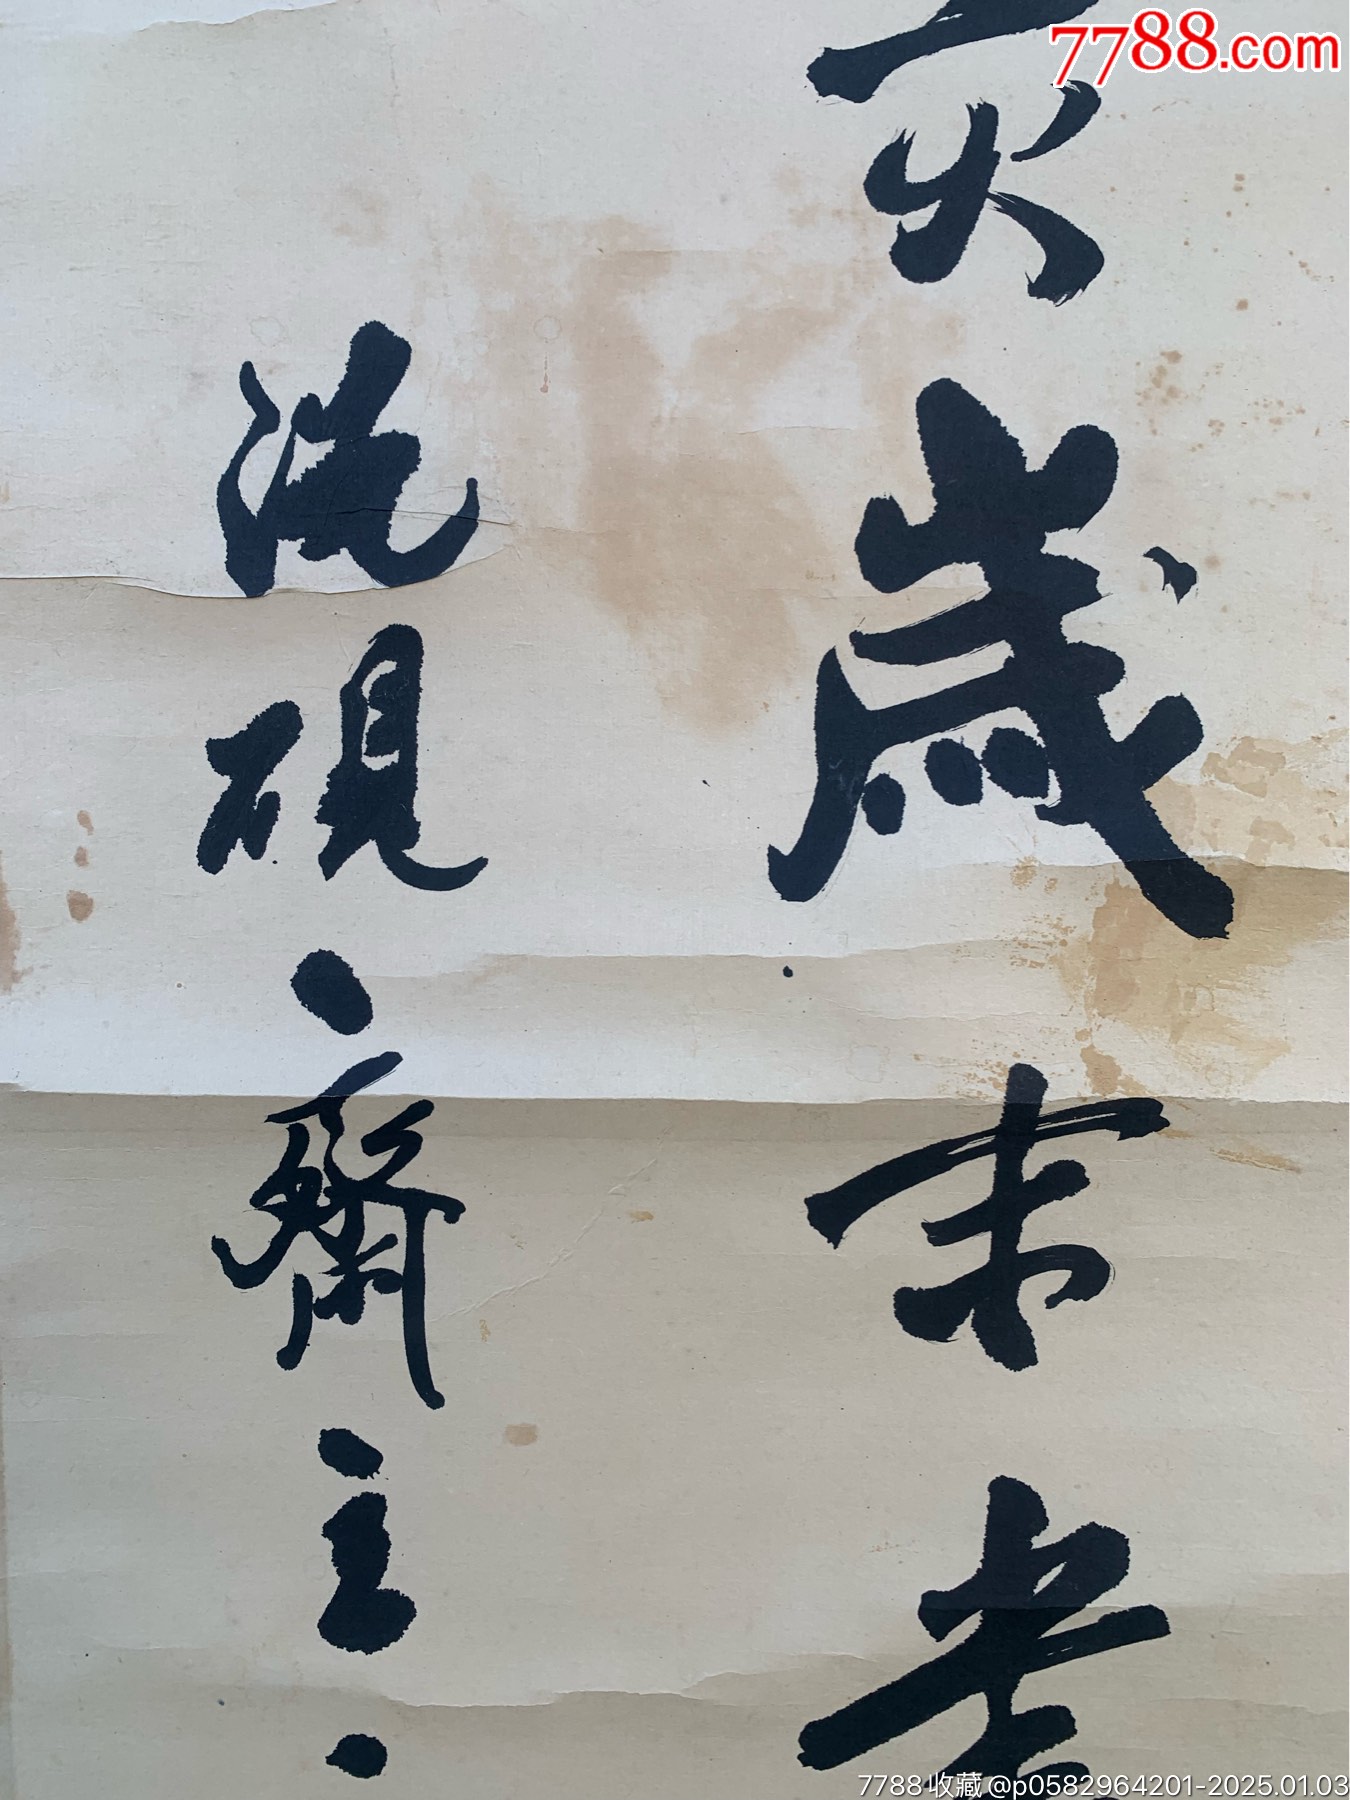 7788.com
亥歲末書
洗硯齋主
7788收藏 @p0582964201-2025.01.03